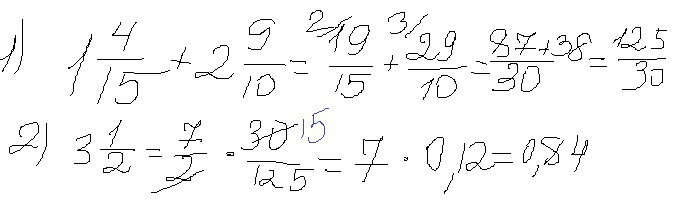 1) 1 4/15 + 2 9/10 = 2/ 19/15 + 3/ 29/10 = 87+38/30 = 125/30
2) 3 1/2 = 7/2 · 30 15/125 = 7 · 0,12 = 0,84